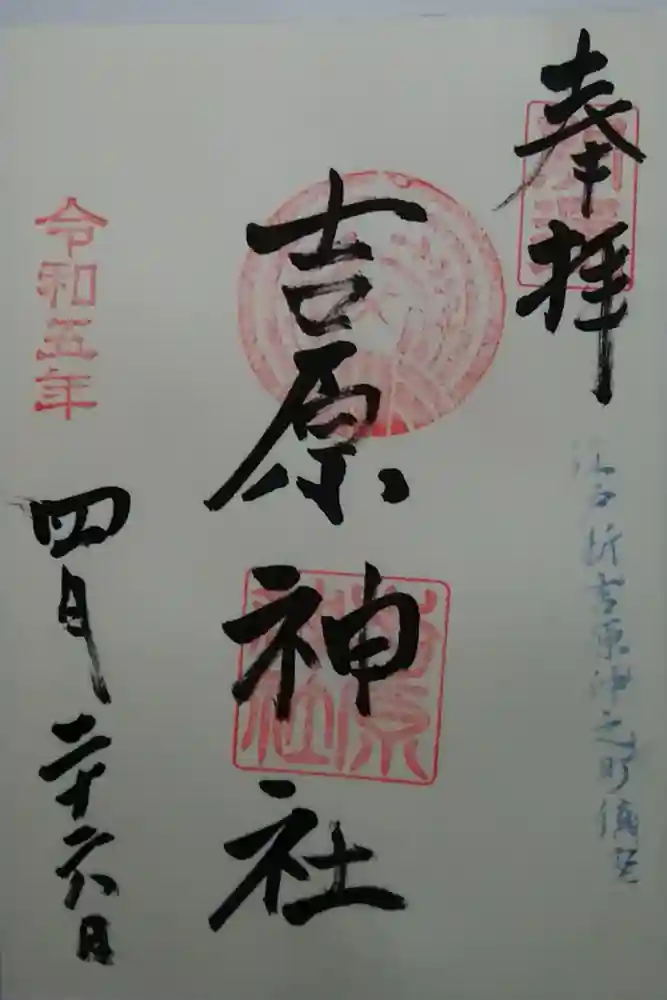 奉拝
吉原神社
吉原神社
令和五年
四月二十六日